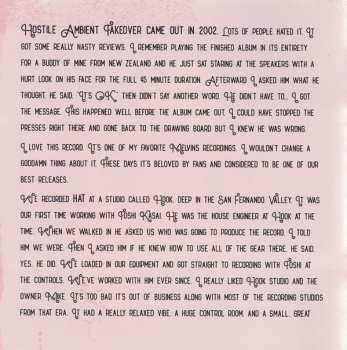 Hostile Ambient Takeover came out in 2002. Lots of people hated it. I
got some really nasty reviews. I remember playing the finished album in its entirety
for a buddy of mine from New Zealand and he just sat staring at the speakers with a
hurt look on his face for the full 45 minute duration. Afterward I asked him what he
thought. He said, "It's OK" then didn't say another word. He didn't have to... I got
the message. This happened well before the album came out. I could have stopped the
presses right there and gone back to the drawing board but I knew he was wrong.
I love this record. It's one of my favorite Melvins recordings. I wouldn't change a
goddamn thing about it. These days it's beloved by fans and considered to be one of our
best releases.
We recorded HAT at a studio called Hook, deep in the San Fernando Valley. It was
our first time working with Toshi Kasai. He was the house engineer at Hook at the
time. When we walked in he asked us who was going to produce the record. I told
him we were. Then I asked him if he knew how to use all of the gear there. He said,
yes, he did. We loaded in our equipment and got straight to recording with Toshi at
the controls. We've worked with him ever since. I really liked Hook studio and the
owner Mike. It's too bad it's out of business along with most of the recording studios
from that era. It had a really relaxed vibe, a huge control room, and a small, great